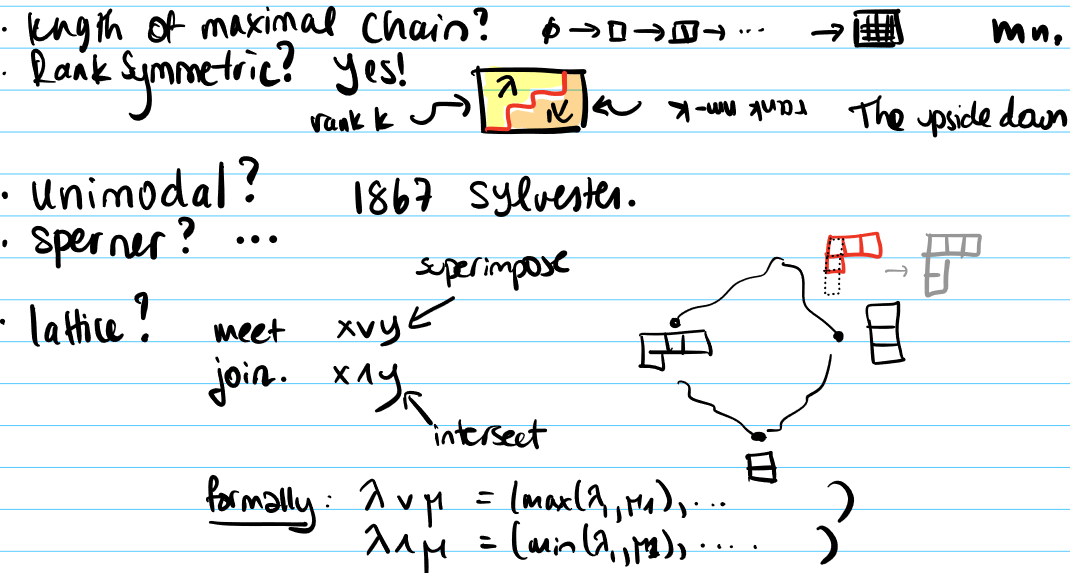 · length of maximal chain? ϕ → □ → □□ → ... → mn.
· Rank Symmetric? Yes!
rank k λ rank mn-k The upside down
· unimodal? 1867 Sylvester.
· sperner? ...
superimpose
· lattice? meet x∨y
join. x∧y
intersect
formally: λ∨μ = (max(λ₁,μ₁), ... )
λ∧μ = (min(λ₁,μ₁), .... )